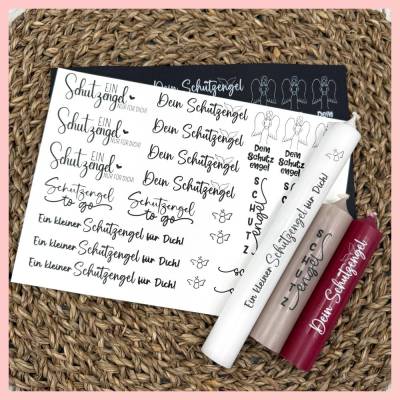 EIN
Schutzengel
NUR FÜR DICH!
EIN
Schutzengel
NUR FÜR DICH!
EIN
Schutzengel
NUR FÜR DICH!
Schutzengel
to go
Schutzengel
to go
Ein kleiner Schutzengel für Dich!
Ein kleiner Schutzengel für Dich!
Ein kleiner Schutzengel für Dich!
Dein Schutzengel
Dein Schutzengel
Dein Schutzengel
Dein Schutzengel
Dein Schutzengel
Dein
Schutz
engel
Dein
Schutz
engel
SCHUTZ
engel
Ein kleiner Schutzengel für Dich!
SCHUTZ
engel
Dein Schutzengel